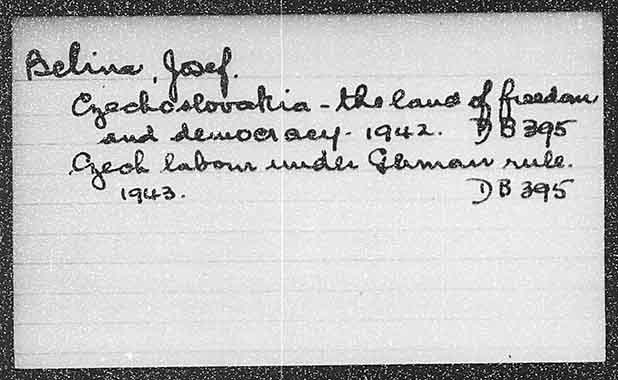 Belina, Josef.
Czechoslovakia - the land of freedom
and democracy. 1942. DB 395
Czech labour under German rule.
1943. DB 395